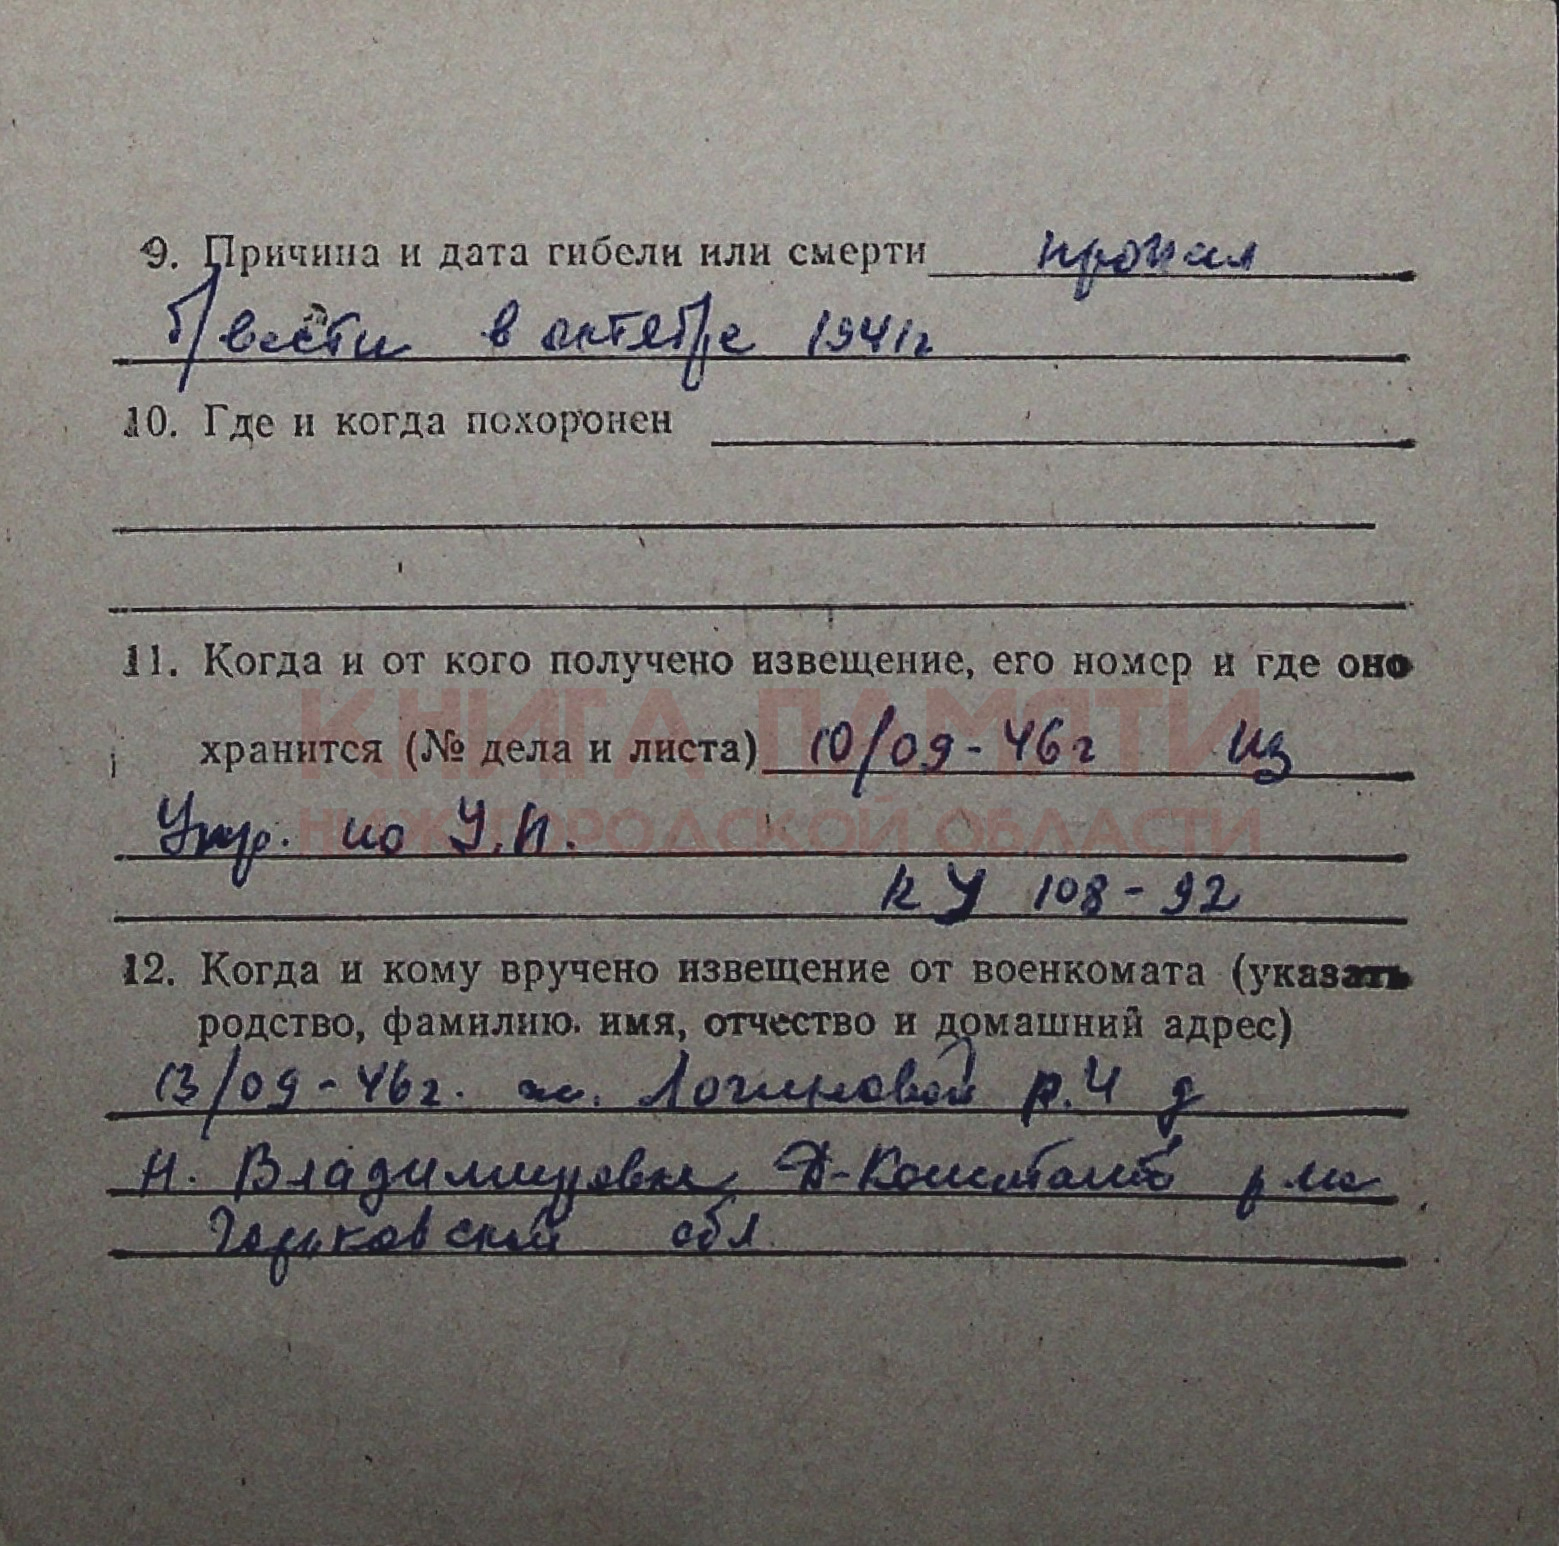 9. Причина и дата гибели или смерти пропал
б/вести в октябре 1941г
10. Где и когда похоронен
11. Когда и от кого получено извещение, его номер и где оно
КНИГА ПАМЯТИ
хранится (№ дела и листа) 10/09-46г из
НИЖЕГОРОДСКОЙ ОБЛАСТИ
Упр. по У.П.
КУ 108-92
12. Когда и кому вручено извещение от военкомата (указать
родство, фамилию, имя, отчество и домашний адрес)
13/09-46г. ж. Логиновой р.Ч д
Н. Владимировке Д-Констант р на
Горьковской обл.